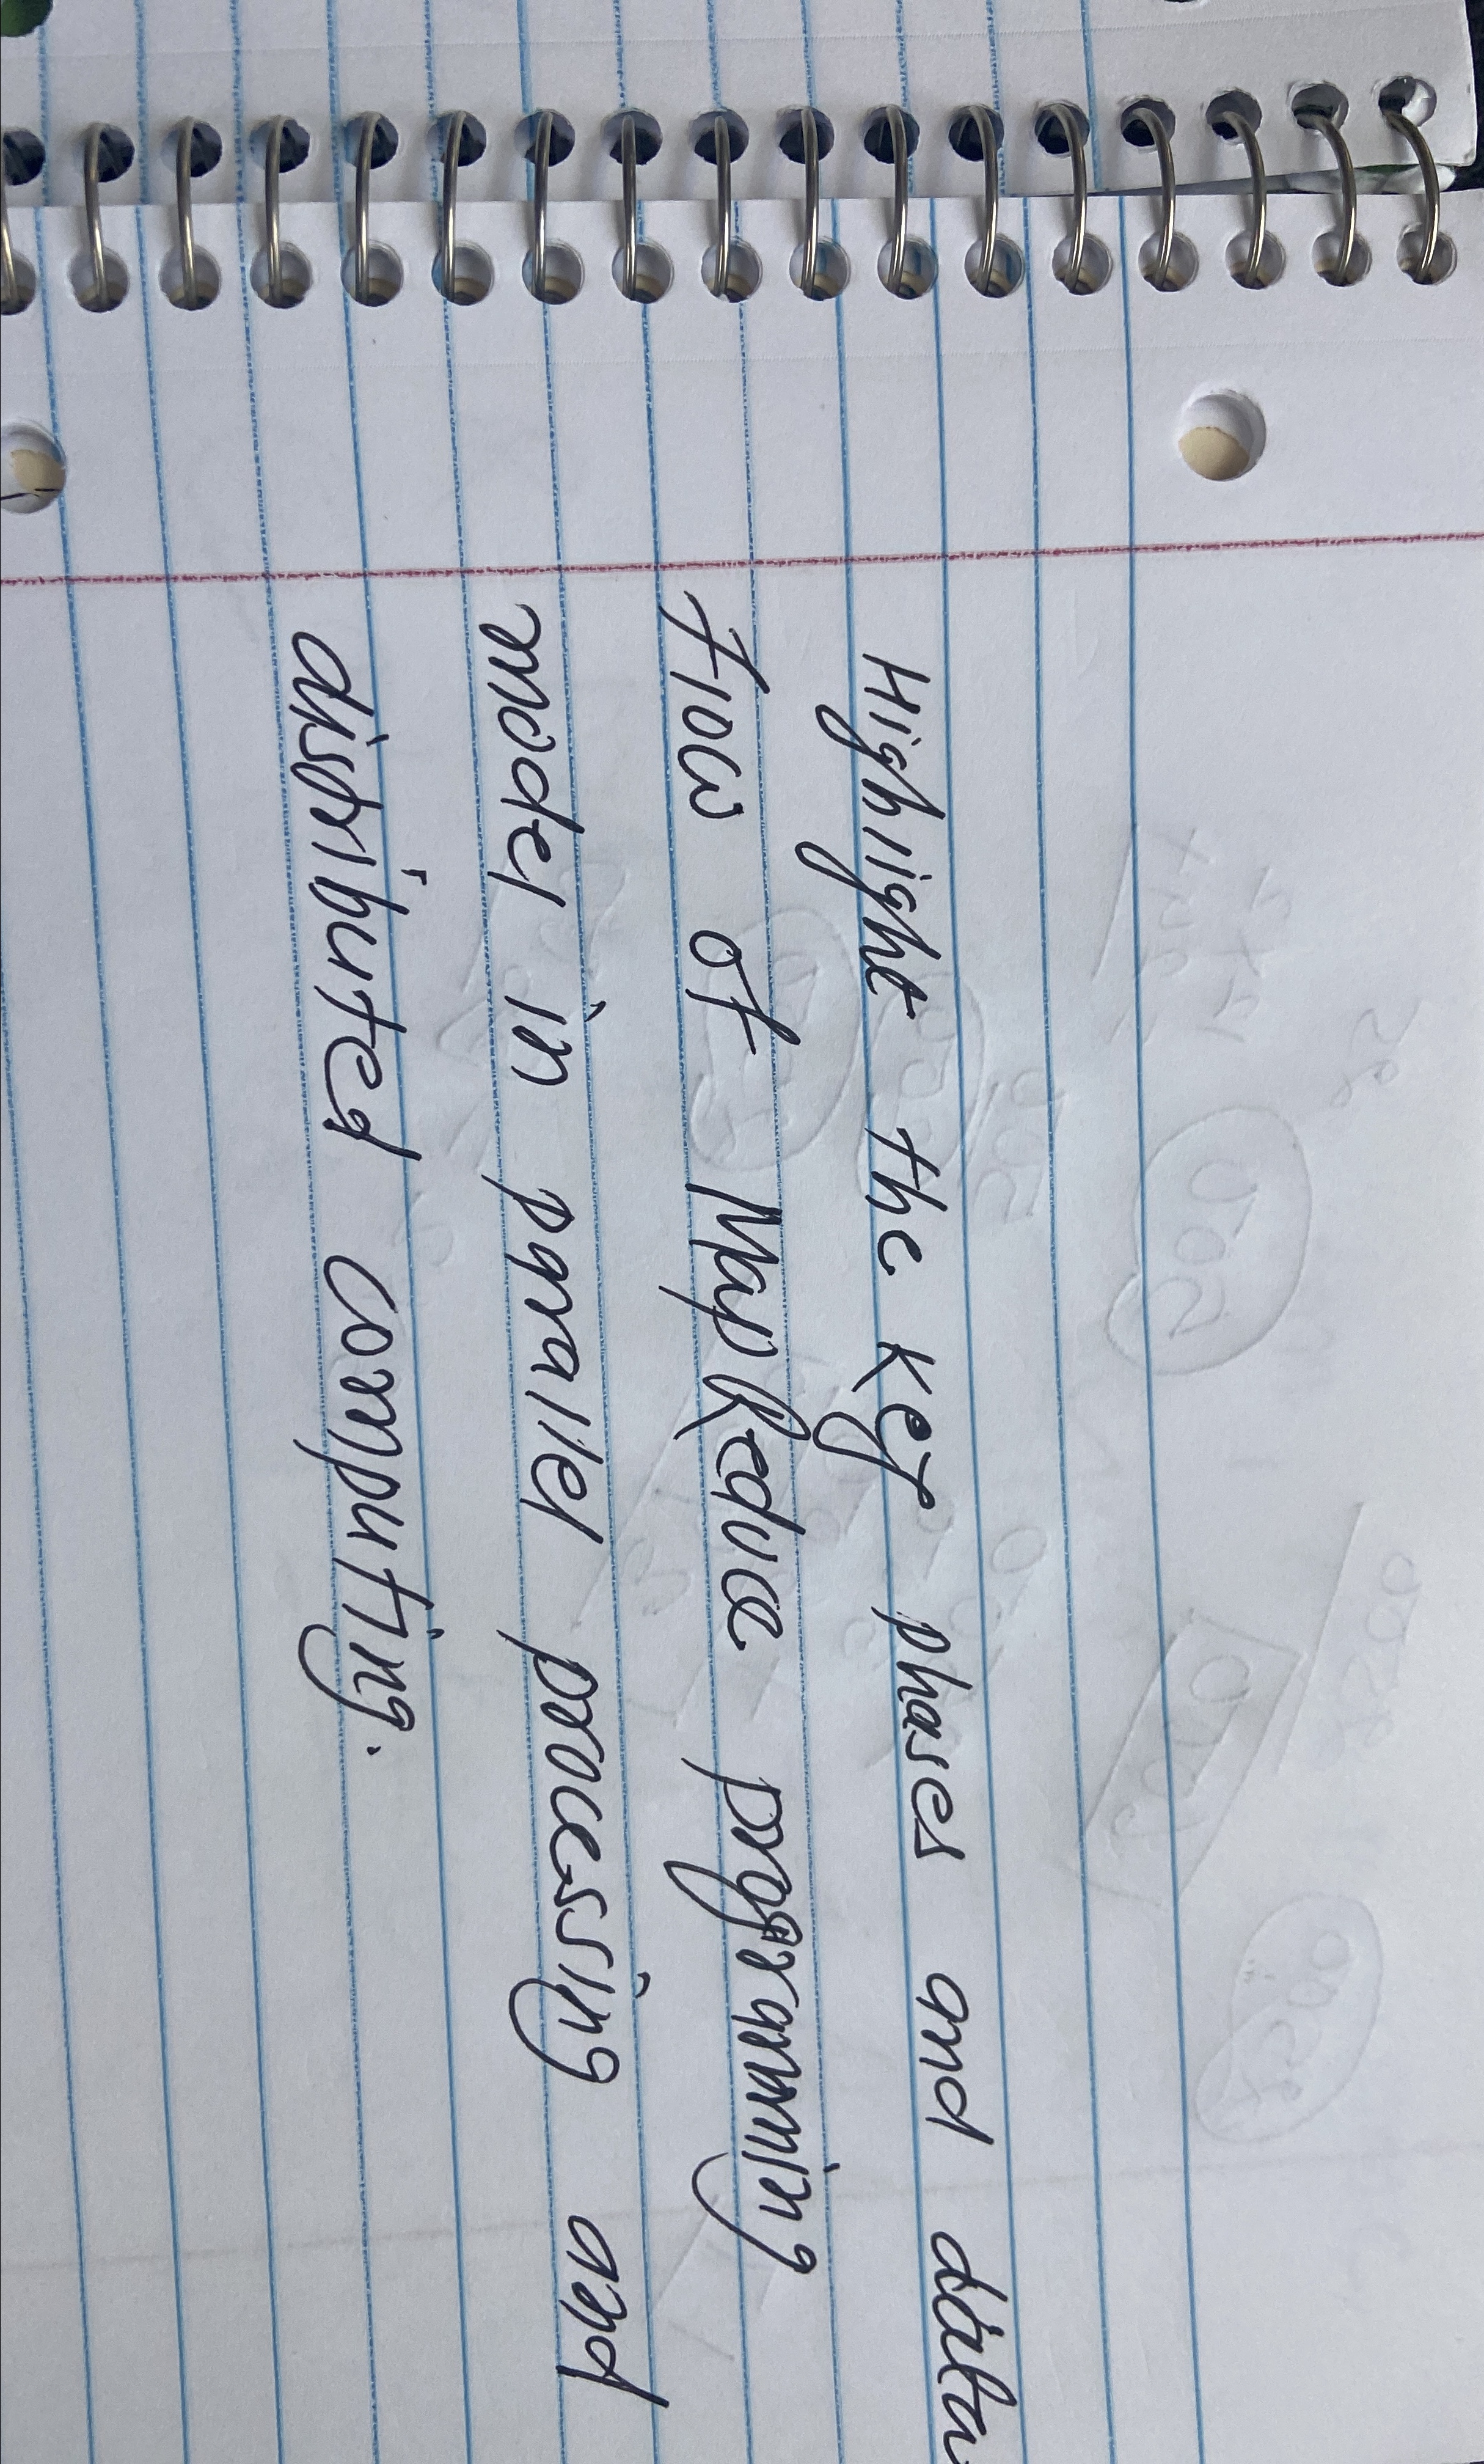 Highlight the key phases and data
flow of MapReduce programming
model in parallel processing and
distributed computing.